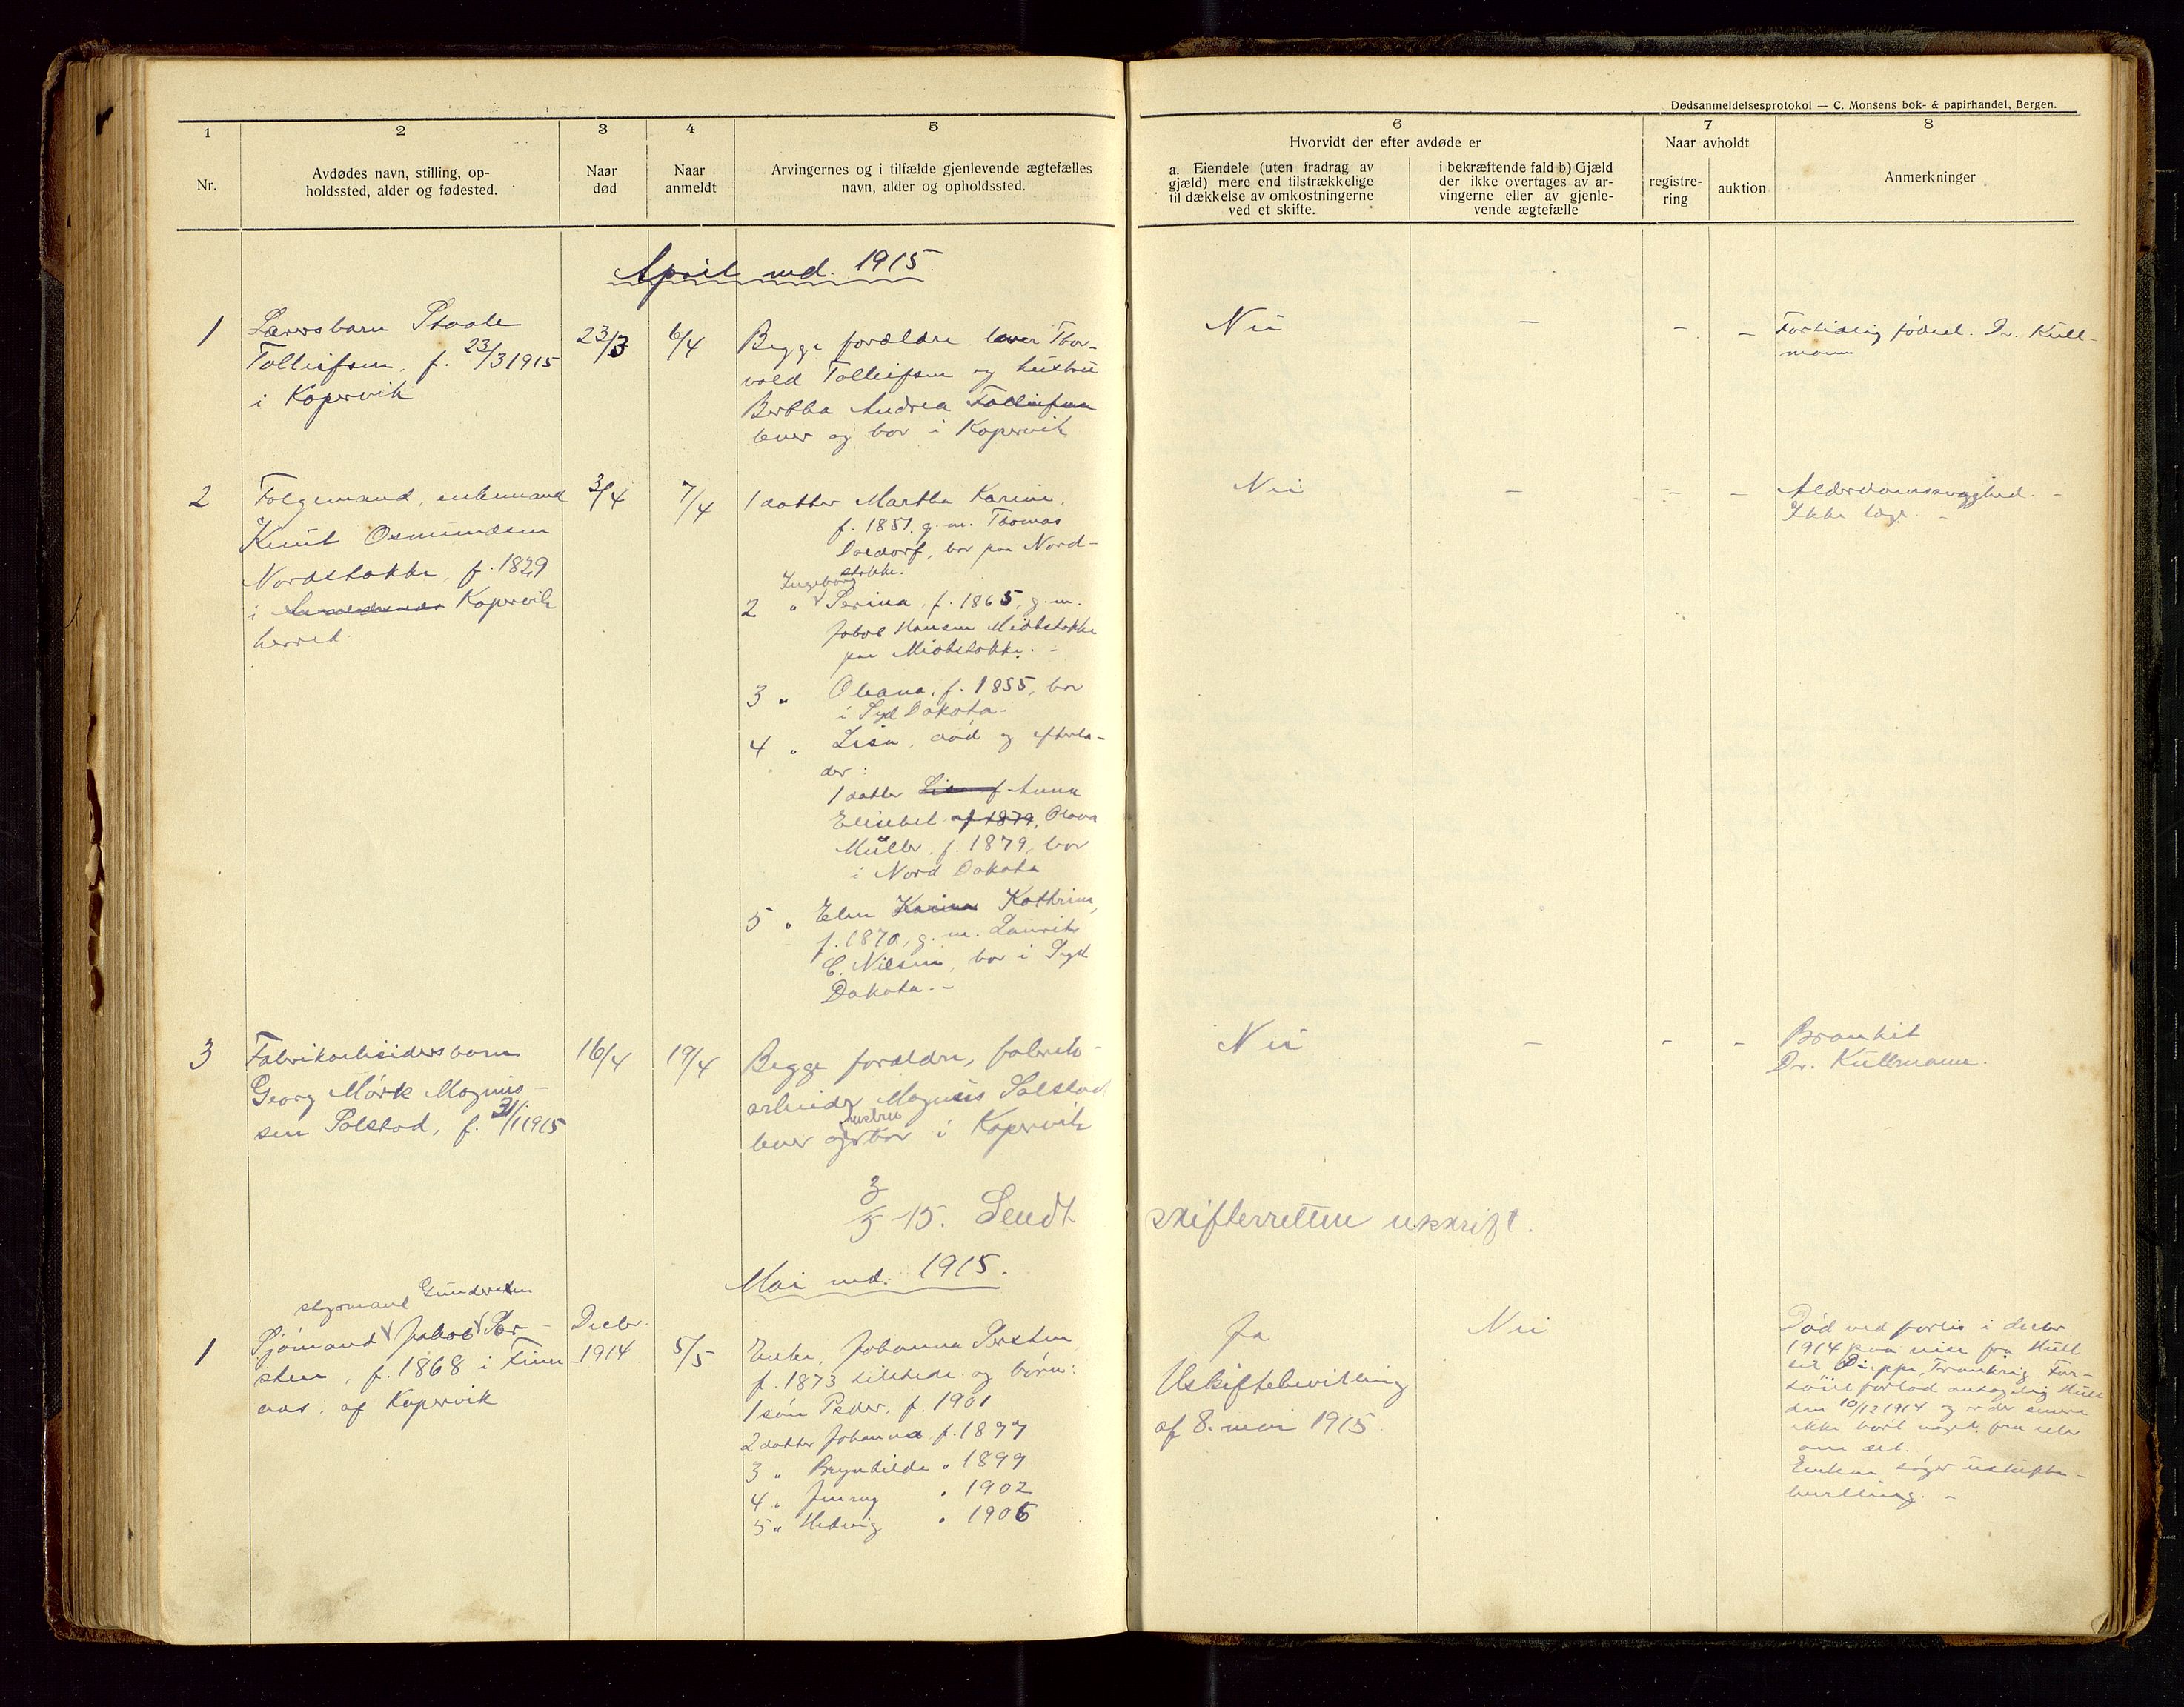 Dødsanmeldelsesprotokol — C. Monsens bok- & papirhandel, Bergen.
1
2
3
4
5
6
7
8
Nr.
Avdødes navn, stilling, op-
holdssted, alder og fødested.
Naar
død
Naar
anmeldt
Arvingernes og i tilfælde gjenlevende ægtefælles
navn, alder og opholdssted.
Hvorvidt der efter avdøde er
a. Eiendele (uten fradrag av
gjæld) mere end tilstrækkelige
til dækkelse av omkostningerne
ved et skifte.
i bekræftende fald b) Gjæld
der ikke overtages av ar-
vingerne eller av gjenle-
vende ægtefælle
Naar avholdt
registre-
ring
auktion
Anmerkninger
April md. 1915.
1
Staale
Tolleifsen, f. 23/3 1915
i Kopervik
23/3
6/4
Begge forældre Thor-
vald Tolleifsen og hustru
Bertha Andrea Tolleifsen
lever og bor i Kopervik
Nei
–
–
–
Fortidlig fødsel. Dr. Kull-
mann
2
Folgemand, enkemand
Knut Osmundsen
Nordstokke, f. 1829
i Kopervik
herred.
3/4
7/4
1 datter Martha Karine,
f. 1851. g. m. Thomas
bor paa Nord-
stokke.
Ingeborg
2 " Serina, f. 1865, g. m.
Jakob Hansen Midtstokke
paa Midtstokke. -
3 " Oleana, f. 1855, bor
i Syd Dakota.
4 " Lisa, død og efterla-
der:
1 datter Anna
Elisebet f 1879, Olava
Müller, f. 1879, bor
i Nord Dakota
5 " Elen Karina Kathrine,
f. 1870, g. m. Laurits
C. Nilsen, bor i Syd
Dakota. -
Nei
–
–
–
Alderdomssvaghed. -
Ikke læge. -
3
Fabrikarbeidersbarn
Georg Mørk Magnus-
sen Salstad, f. 31/1 1915
16/4
19/4
Begge forældre, fabrik-
arbeider Magnus Salstad
hustru
lever og bor i Kopervik
Nei
–
–
–
Bronkit
Dr. Kullmann.
3/5 15. Sendt skifteretten utskrift.
Mai md. 1915.
styrmand Gundersen
1
Sjømand Jakob Tor-
sten, f. 1868 i Finn-
aas, af Kopervik
Decbr.
1914
5/5
Enke, Johanna Torsten
f. 1873 tilstede og børn:
1 søn Peder, f. 1901
2 datter Johanna f. 1897
3 " Brynhilde " 1899
4 " Jenny " 1902
5 " Hedvig " 1906
Ja
Uskiftebevilling
af 8. mai 1915
Nei
Død ved forlis i decbr
1914 paa reise fra Hull
til Dieppe, Frankrig. Far-
tøiet forlod Hull
den 10/12 1914 og er der senere
ikke hørt noget fra eller
om det.
Enken søger uskifte-
bevilling. -